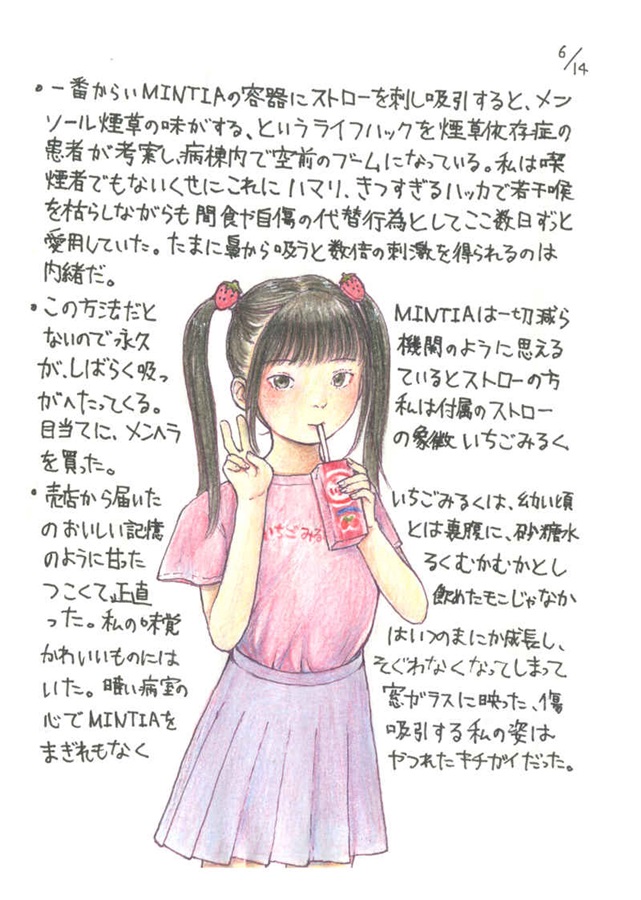 6/14
・一番からいMINTIAの容器にストローを刺し吸引すると、メン
ソール煙草の味がする、というライフハックを煙草依存症の
患者が考案し、病棟内で空前のブームになっている。私は喫
煙者でもないくせにこれにハマリ、きつすぎるハッカで若干喉
を枯らしながらも間食や自傷の代替行為としてここ数日ずっと
愛用していた。たまに鼻から吸うと数倍の刺激を得られるのは
内緒だ。
・この方法だと MINTIAは一切減ら
ないので永久 機関のように思える
が、しばらく吸っ ているとストローの方
がへたってくる。 私は付属のストロー
目当てに、メンヘラ の象徴いちごみるく
を買った。
・売店から届いた いちごみるくは、幼い頃
のおいしい記憶 とは裏腹に、砂糖水
のように甘った るくむかむかとし
つこくて、正直 飲めたモンじゃなか
った。私の味覚 はいつのまにか成長し、
かわいいものには そぐわなくなってしまって
いた。暗い病室の 窓ガラスに映った、傷
心でMINTIAを 吸引する私の姿は
まぎれもなく やつれたキチガイだった。
いちごみる